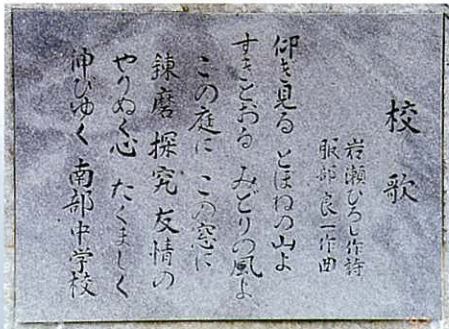 校歌
岩瀬ひろし作詩
服部良一作曲
仰ぎ見る とほねの山よ
すきとおる みどりの風よ
この庭に この窓に
錬磨 探究 友情の
やりぬく心 たくましく
伸びゆく 南部中学校